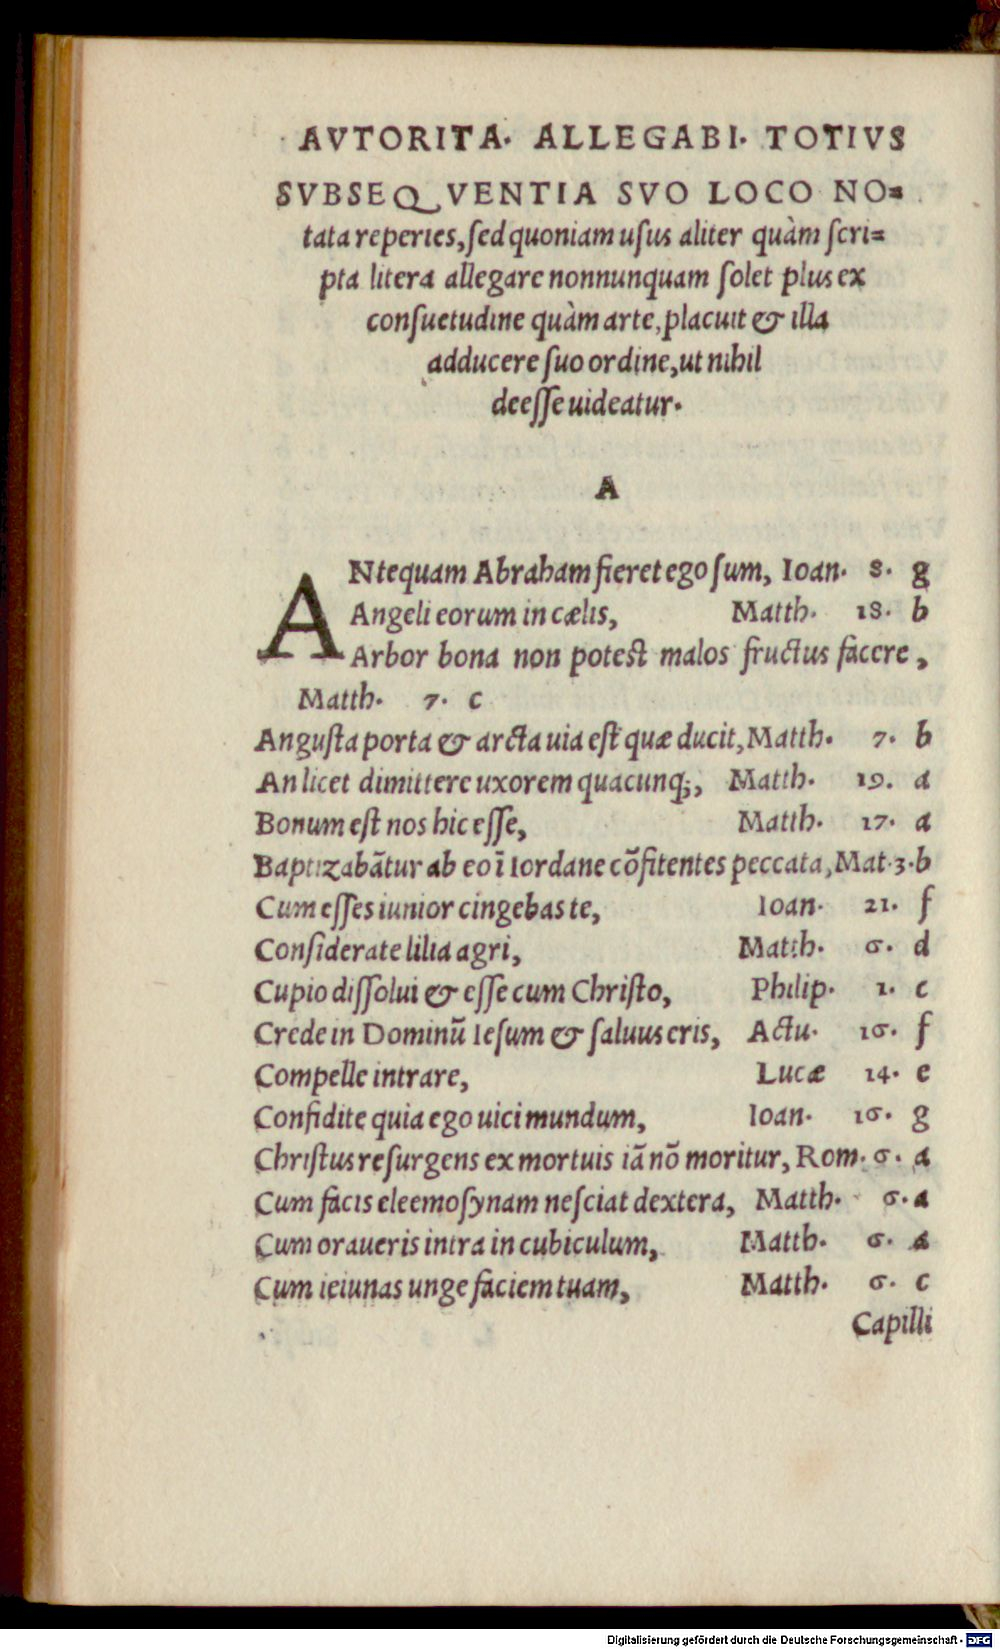 AVTORITA. ALLEGABI. TOTIVS
SVBSEQVENTIA SVO LOCO NO=
tata reperies, sed quoniam usus aliter quàm scri=
pta litera allegare nonnunquam solet plus ex
consuetudine quàm arte, placuit & illa
adducere suo ordine, ut nihil
deesse uideatur.
A
ANtequam Abraham fieret ego sum, Ioan. 8. g
Angeli eorum in cælis, Matth. 18. b
Arbor bona non potest malos fructus facere,
Matth. 7. c
Angusta porta & arcta uia est quæ ducit, Matth. 7. b
An licet dimittere uxorem quacunq;, Matth. 19. a
Bonum est nos hic esse, Matth. 17. a
Baptizabãtur ab eo ĩ Iordane cõfitentes peccata, Mat. 3. b
Cum esses iunior cingebas te, Ioan. 21. f
Considerate lilia agri, Matth. 6. d
Cupio dissolui & esse cum Christo, Philip. 1. c
Crede in Dominũ Iesum & saluus eris, Actu. 16. f
Compelle intrare, Lucæ 14. e
Confidite quia ego uici mundum, Ioan. 16. g
Christus resurgens ex mortuis iã nõ moritur, Rom. 6. a
Cum facis eleemosynam nesciat dextera, Matth. 6. a
Cum oraueris intra in cubiculum, Matth. 6. a
Cum ieiunas unge faciem tuam, Matth. 6. c
Capilli
Digitalisierung gefördert durch die Deutsche Forschungsgemeinschaft - DFG